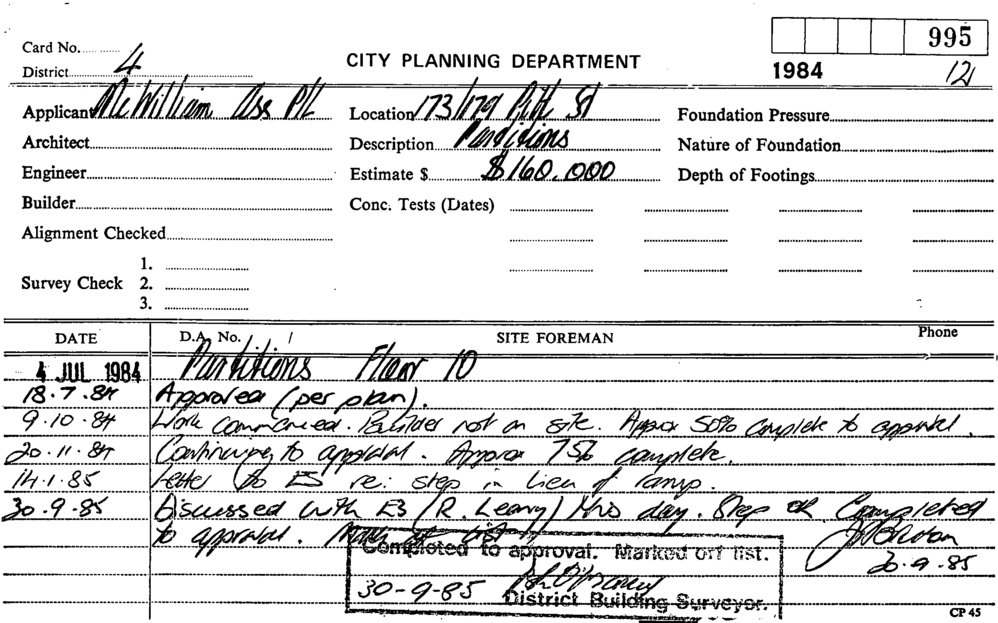 995
Card No.
District 4
CITY PLANNING DEPARTMENT
1984 121
Applicant McWilliam Ass P/L
Location 173/179 Pitt St
Foundation Pressure
Architect
Description Partitions
Nature of Foundation
Engineer
Estimate $ $160,000
Depth of Footings
Builder
Conc. Tests (Dates)
Alignment Checked
Survey Check 1.
2.
3.
DATE D.A. No. / SITE FOREMAN Phone
4 JUL 1984 Partitions Floor 10
18.7.84 Approved (per plan).
9.10.84 Work commenced. Builder not on site. Approx 50% complete to approval.
20.11.84 Continuing to approval. Approx 75% complete.
14.1.85 Letter to ES re: step in lieu of ramp.
30.9.85 Discussed with ES (R. Leary) this day. Step OK. Completed
to approval. Mark off list
Completed to approval. Marked off list.
30.9.85
30-9-85
District Building Surveyor.
CP 45